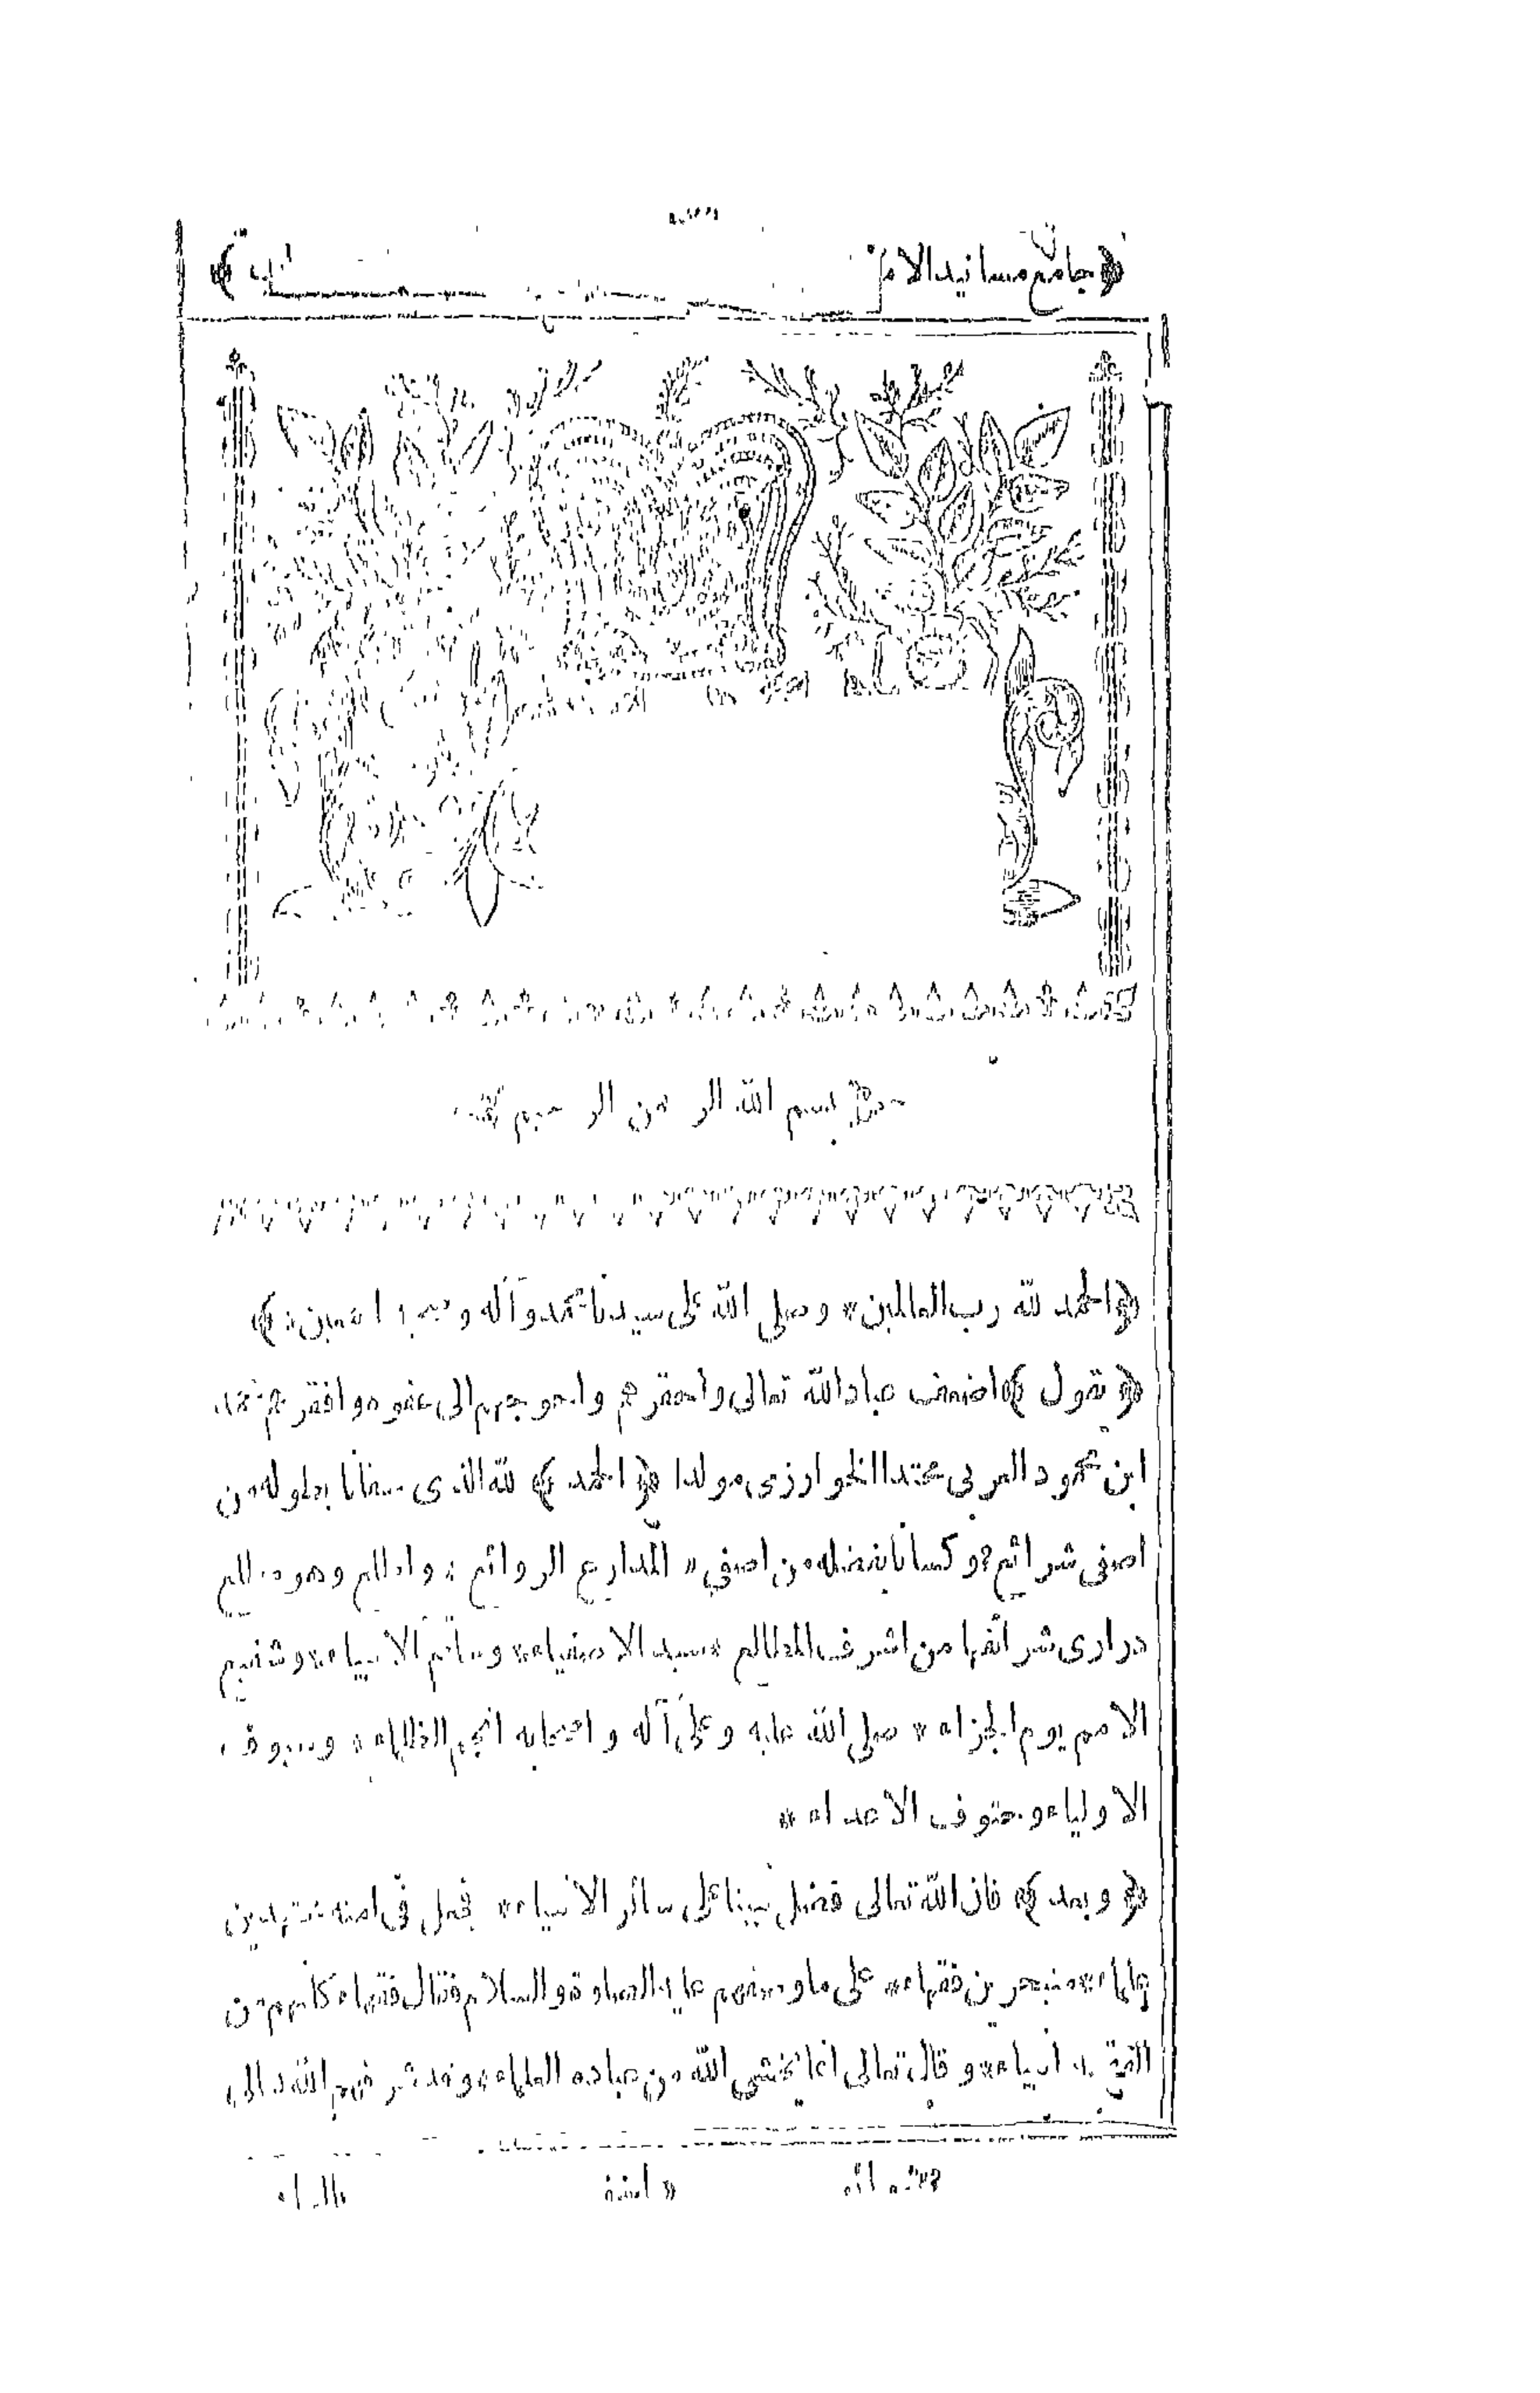 ﴿جامع مسانيد الامام
بسم الله الرحمن الرحيم
﴿الحمد لله رب العالمين * وصلى الله على سيدنا محمد وآله وصحبه اجمعين﴾
﴿يقول﴾ اضعف عباد الله تعالى واحقرهم واحوجهم الى عفوه وافقرهم محمد
ابن محمود العربى محتدا الخوارزمى مولدا ﴿الحمد﴾ لله الذى سقانا بطوله من
اصفى شرائع وكسانا بفضله من اصفى * المدارع الروائع * واطلع وهو
درارى شرائعها من اشرف المطالع * سيد الاصفياء * وخاتم الانبياء * وشفيع
الامم يوم الجزاء * صلى الله عليه وعلى آله واصحابه انجم الظلماء * وسيوف
الاولياء وحتوف الاعداء *
﴿وبعد﴾ فان الله تعالى فضل نبينا على سائر الانبياء * فجعل فى امته مجتهدين
علماء * متبحرين فقهاء * على ما وصفهم عليه الصلوة والسلام فقال فقهاء كأنهم من
الفقه انبياء * وقال تعالى انما يخشى الله من عباده العلماء * وقد شرفهم الله تعالى